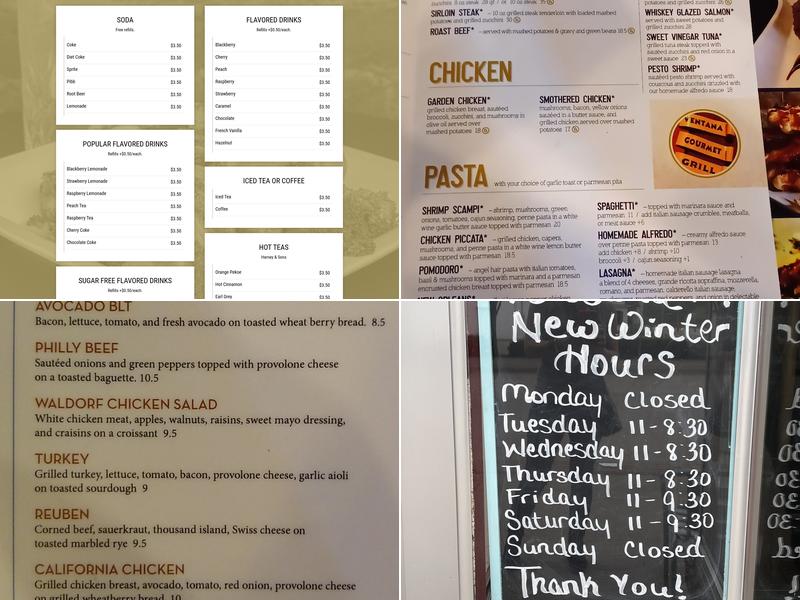 SODA
Free refills.
Coke $3.50
Diet Coke $3.50
Sprite $3.50
Pibb $3.50
Root Beer $3.50
Lemonade $3.50
POPULAR FLAVORED DRINKS
Refills +$0.50/each.
Blackberry Lemonade $3.50
Strawberry Lemonade $3.50
Raspberry Lemonade $3.50
Peach Tea $3.50
Raspberry Tea $3.50
Cherry Coke $3.50
Chocolate Coke $3.50
SUGAR FREE FLAVORED DRINKS
FLAVORED DRINKS
Refills +$0.50/each.
Blackberry $3.50
Cherry $3.50
Peach $3.50
Raspberry $3.50
Strawberry $3.50
Caramel $3.50
Chocolate $3.50
French Vanilla $3.50
Hazelnut $3.50
ICED TEA OR COFFEE
Iced Tea $3.50
Coffee $3.50
HOT TEAS
Harney & Sons
Orange Pekoe $3.50
Hot Cinnamon $3.50
Earl Grey $3.50
SIRLOIN STEAK* – 10 oz grilled steak tenderloin with loaded mashed
potatoes and grilled zucchini 30
ROAST BEEF* – served with mashed potatoes & gravy and green beans 18.5
WHISKEY GLAZED SALMON*
served with sweet potatoes and
grilled zucchini 28
SWEET VINEGAR TUNA*
grilled tuna steak topped with
sautéed zucchini and red onion in a
sweet sauce 23
PESTO SHRIMP*
sautéed pesto shrimp served with
couscous and zucchini drizzled with
our homemade alfredo sauce 18
CHICKEN
GARDEN CHICKEN*
grilled chicken breast, sautéed
broccoli, zucchini, and mushrooms in
olive oil served over
mashed potatoes 18
SMOTHERED CHICKEN*
mushrooms, bacon, yellow onions
sautéed in a butter sauce, and
grilled chicken served over mashed
potatoes 17
VENTANA
GOURMET
GRILL
PASTA with your choice of garlic toast or parmesan pita
SHRIMP SCAMPI* – shrimp, mushrooms, green
onions, tomatoes, cajun seasoning, penne pasta in a white
wine garlic butter sauce topped with parmesan 20
CHICKEN PICCATA* – grilled chicken, capers,
mushrooms, and penne pasta in a white wine lemon butter
sauce topped with parmesan 18.5
POMODORO* – angel hair pasta with italian tomatoes,
basil & mushrooms topped with marinara and a parmesan
encrusted chicken breast topped with parmesan 18.5
SPAGHETTI* – topped with marinara sauce and
parmesan 11 / add italian sausage crumbles, meatballs,
or meat sauce +6
HOMEMADE ALFREDO* – creamy alfredo sauce
over penne pasta topped with parmesan 13
add chicken +8 / shrimp +10
broccoli +3 / cajun seasoning +1
LASAGNA* – homemade italian sausage lasagna
a blend of 4 cheeses, grande ricotta soprafina, mozzarella,
romano, and parmesan, calderello italian sausage,
AVOCADO BLT
Bacon, lettuce, tomato, and fresh avocado on toasted wheat berry bread. 8.5
PHILLY BEEF
Sautéed onions and green peppers topped with provolone cheese
on a toasted baguette. 10.5
WALDORF CHICKEN SALAD
White chicken meat, apples, walnuts, raisins, sweet mayo dressing,
and craisins on a croissant 9.5
TURKEY
Grilled turkey, lettuce, tomato, bacon, provolone cheese, garlic aioli
on toasted sourdough 9
REUBEN
Corned beef, sauerkraut, thousand island, Swiss cheese on
toasted marbled rye 9.5
CALIFORNIA CHICKEN
Grilled chicken breast, avocado, tomato, red onion, provolone cheese
on grilled wheatberry bread 10
New Winter
Hours
Monday Closed
Tuesday 11-8:30
Wednesday 11-8:30
Thursday 11-8:30
Friday 11-9:30
Saturday 11-9:30
Sunday Closed
Thank You!